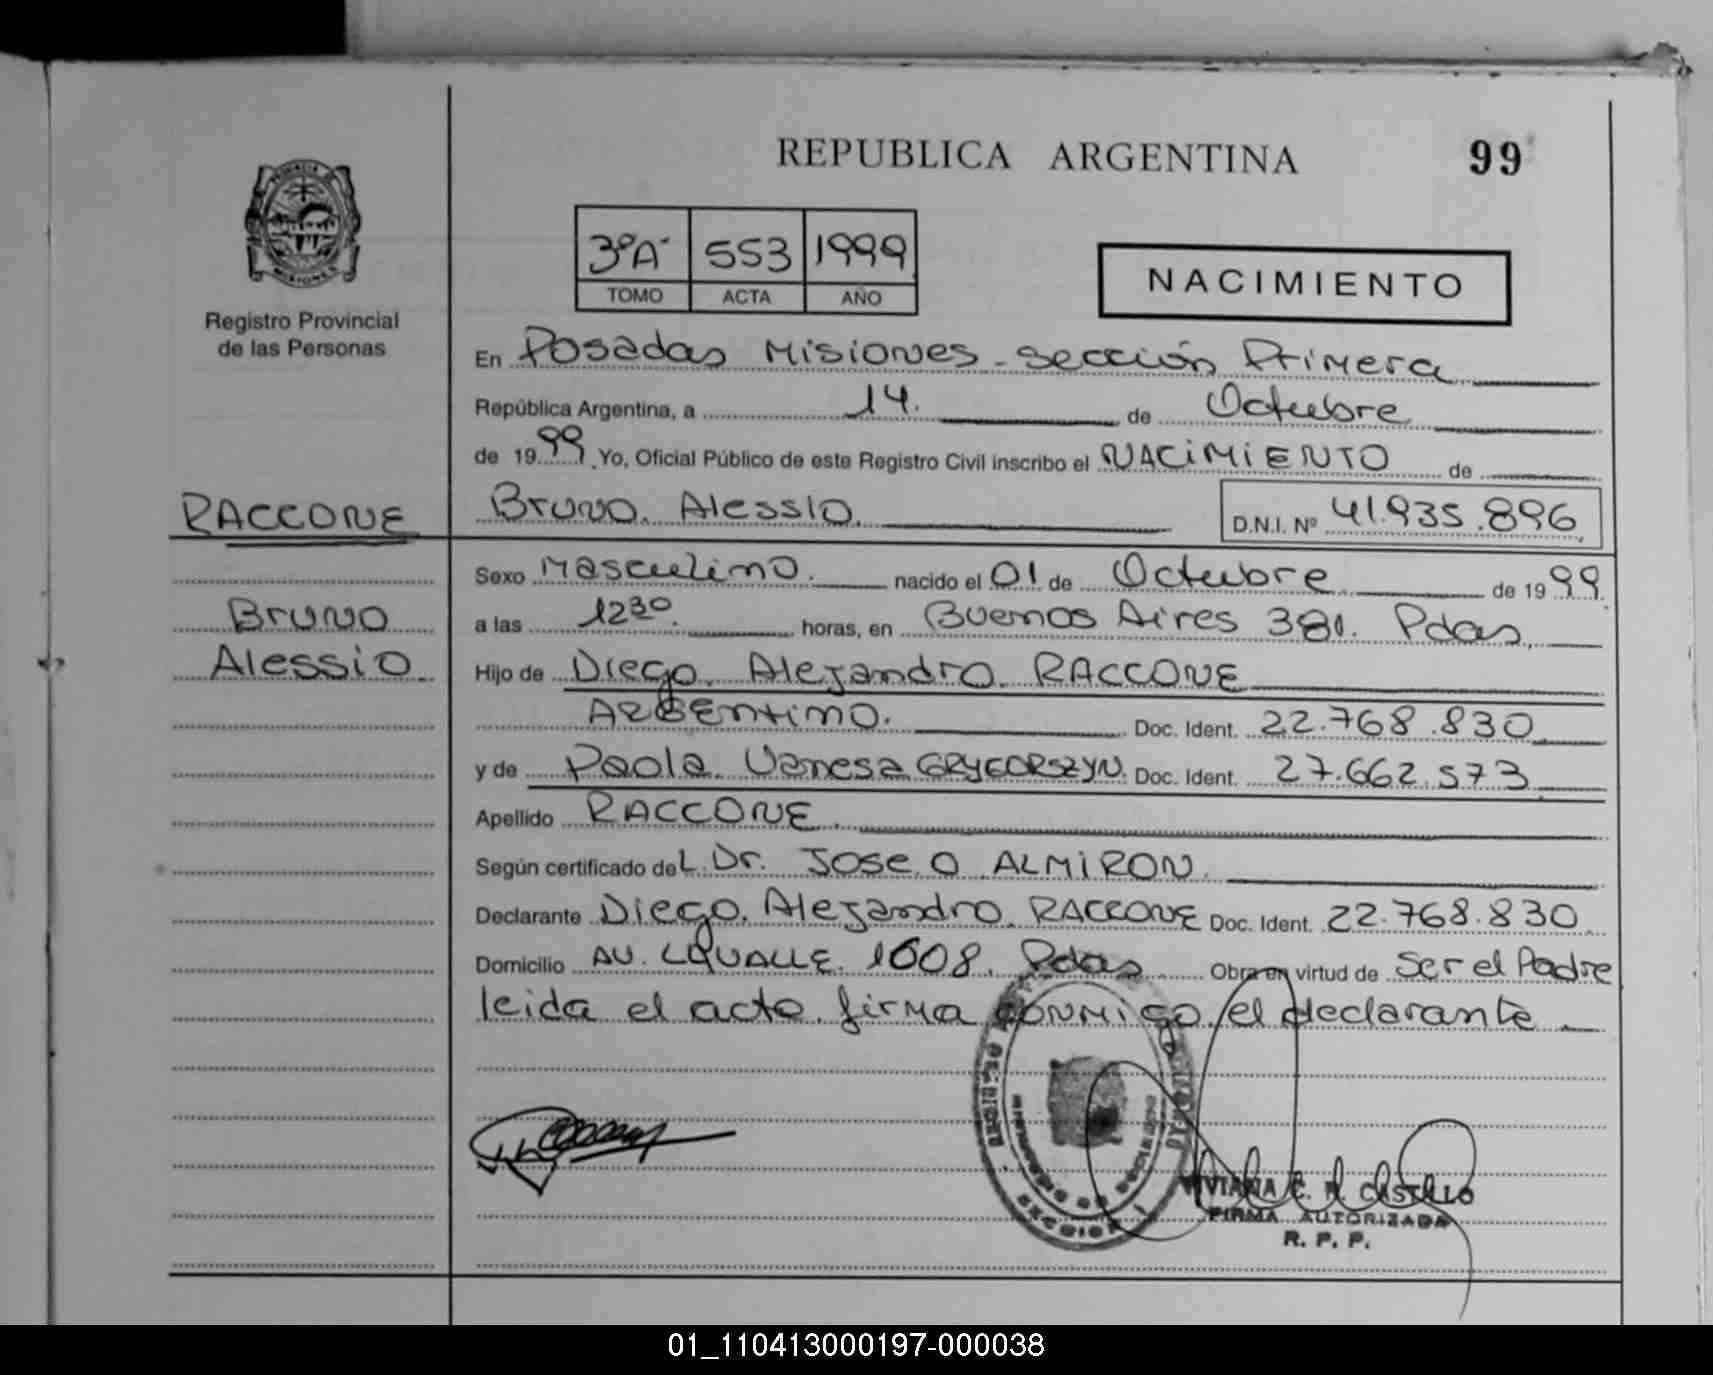 REPUBLICA ARGENTINA 99
PROVINCIA DE MISIONES
Registro Provincial
de las Personas
3ºA 553 1999
TOMO ACTA AÑO
NACIMIENTO
En Posadas Misiones - Sección Primera
República Argentina, a 14. de Octubre
de 1999. Yo, Oficial Público de este Registro Civil inscribo el NACIMIENTO de
RACCONE
Bruno. Alessio. D.N.I. Nº 41.935.896
Sexo Masculino. nacido el 01 de Octubre de 1999.
Bruno
Alessio
a las 12 30. horas, en Buenos Aires 381. Pdas.
Hijo de Diego. Alejandro. RACCONE
ARGENtino. Doc. Ident. 22.768.830
y de Paola. Vanesa GRYEORSZYN. Doc. Ident. 27.662.573
Apellido RACCONE.
Según certificado deL. Dr. JOSE O. ALMIRON.
Declarante Diego. Alejandro. RACCONE Doc. Ident. 22.768.830
Domicilio AV. LQUALLE. 1608. Pdas Obra en virtud de ser el Padre
leida el acto. firma CONMIGO. el declarante
VIVIANA C. R. CASTILLO
FIRMA AUTORIZADA
R. P. P.
01_110413000197-000038